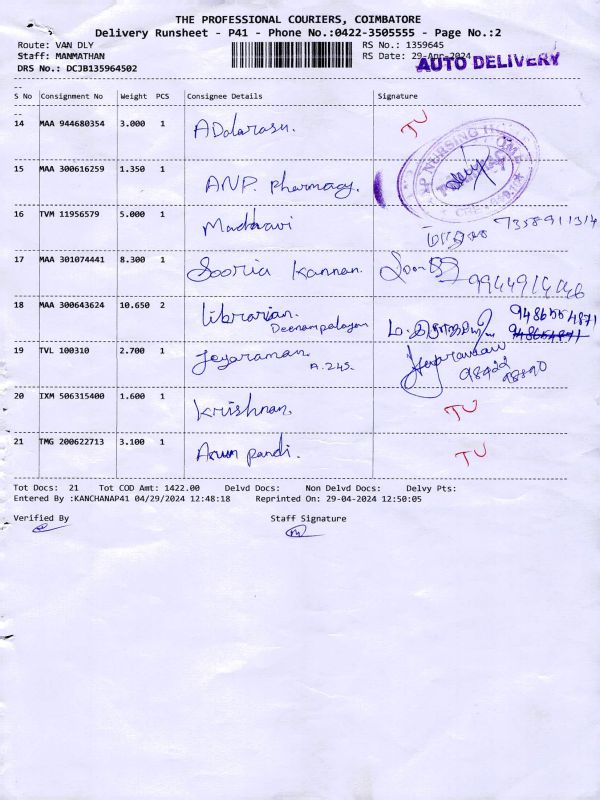 THE PROFESSIONAL COURIERS, COIMBATORE
Delivery Runsheet - P41 - Phone No.:0422-3505555 - Page No.:2
Route: VAN DLY RS No.: 1359645
Staff: MANMATHAN RS Date: 29-Apr-2024
AUTO DELIVERY
DRS No.: DCJB135964502
S No Consignment No Weight PCS Consignee Details Signature
14 MAA 944680354 3.000 1 ADalarasu. TU
15 MAA 300616259 1.350 1 ANP. Pharmacy. NURSING HOME
16 TVM 11956579 5.000 1 Madhavi 7358911314
17 MAA 301074441 8.300 1 Sooria Kannan.
18 MAA 300643624 10.650 2 Librarian. Deenampalayam 9486554871
19 TVL 100310 2.700 1 Jeyaraman. A.245. Jeyaraman 98422 98890
20 IXM 506315400 1.600 1 Krishnan. TU
21 TMG 200622713 3.100 1 Arun pandi. TU
Tot Docs: 21 Tot COD Amt: 1422.00 Delvd Docs: Non Delvd Docs: Delvy Pts:
Entered By :KANCHANAP41 04/29/2024 12:48:18 Reprinted On: 29-04-2024 12:50:05
Verified By Staff Signature